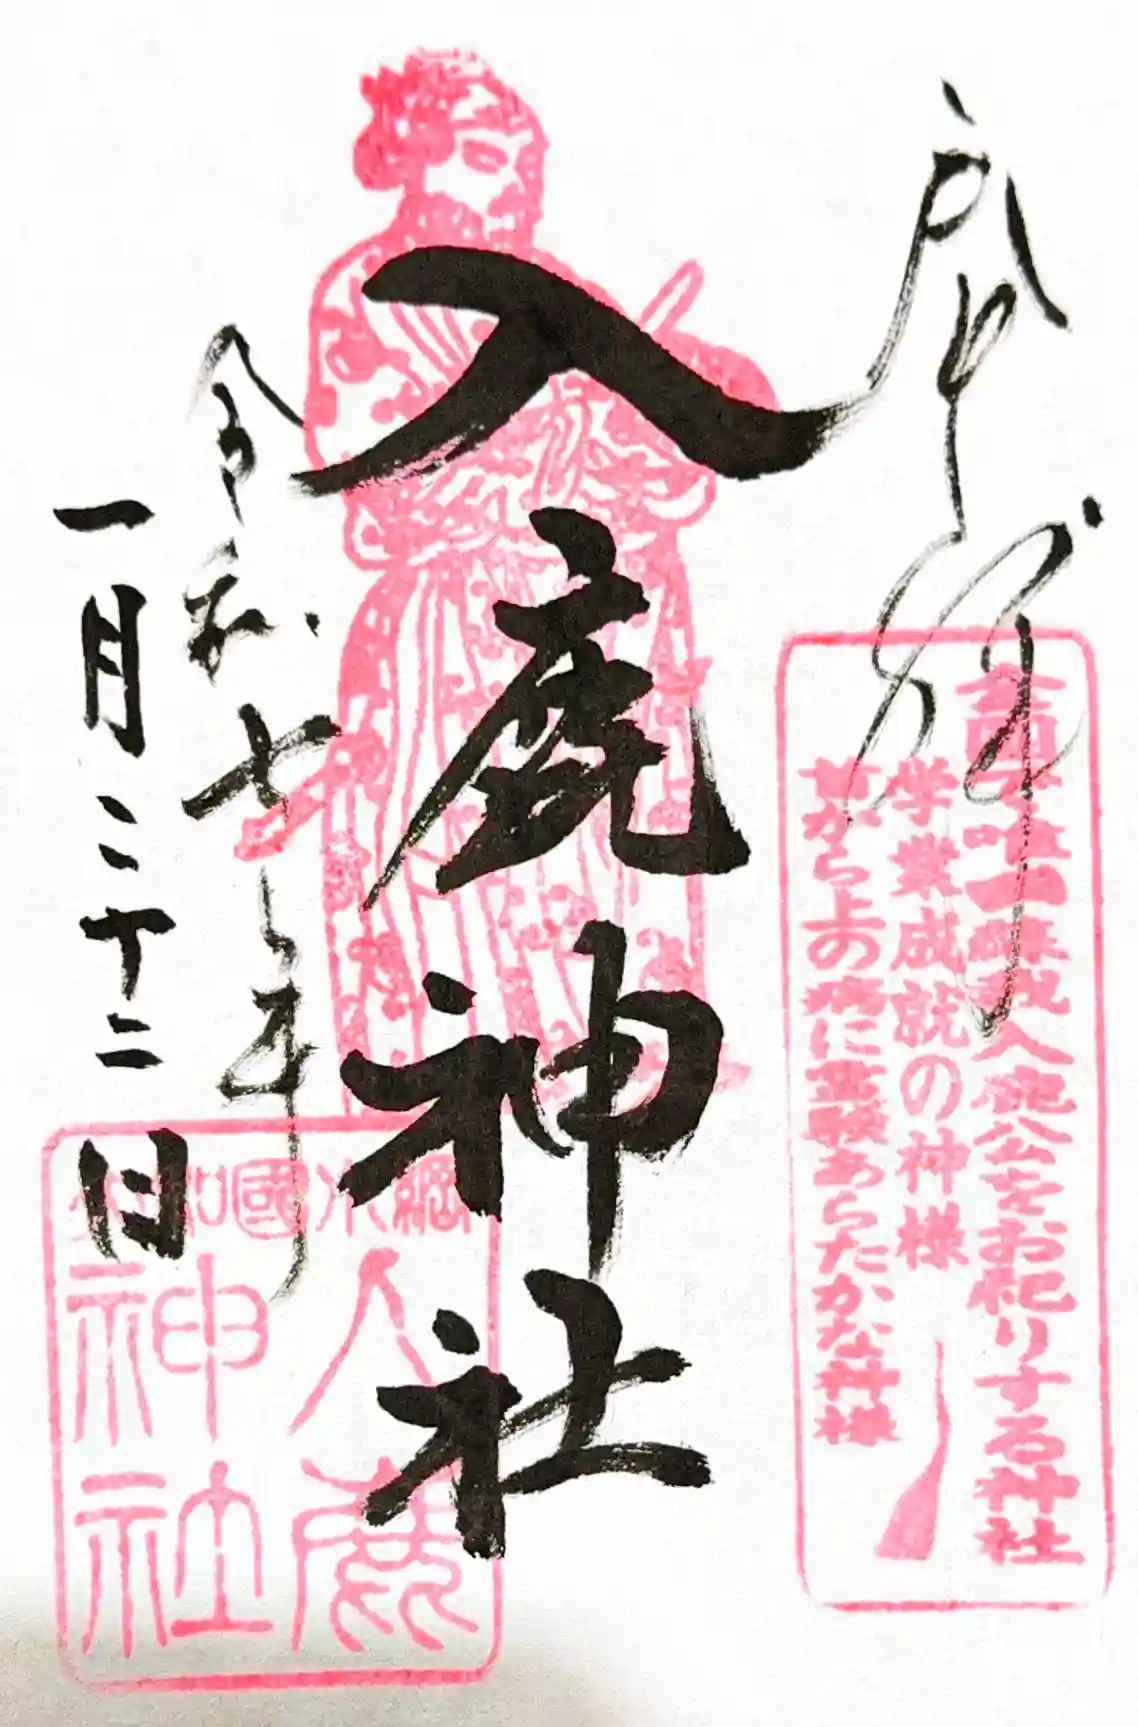 全国で唯一蘇我入鹿公をお祀りする神社
学業成就の神様
首から上の病に霊験あらたかな神様
入鹿神社
令和七年
一月二十二日
大和國小綱
入鹿
神社